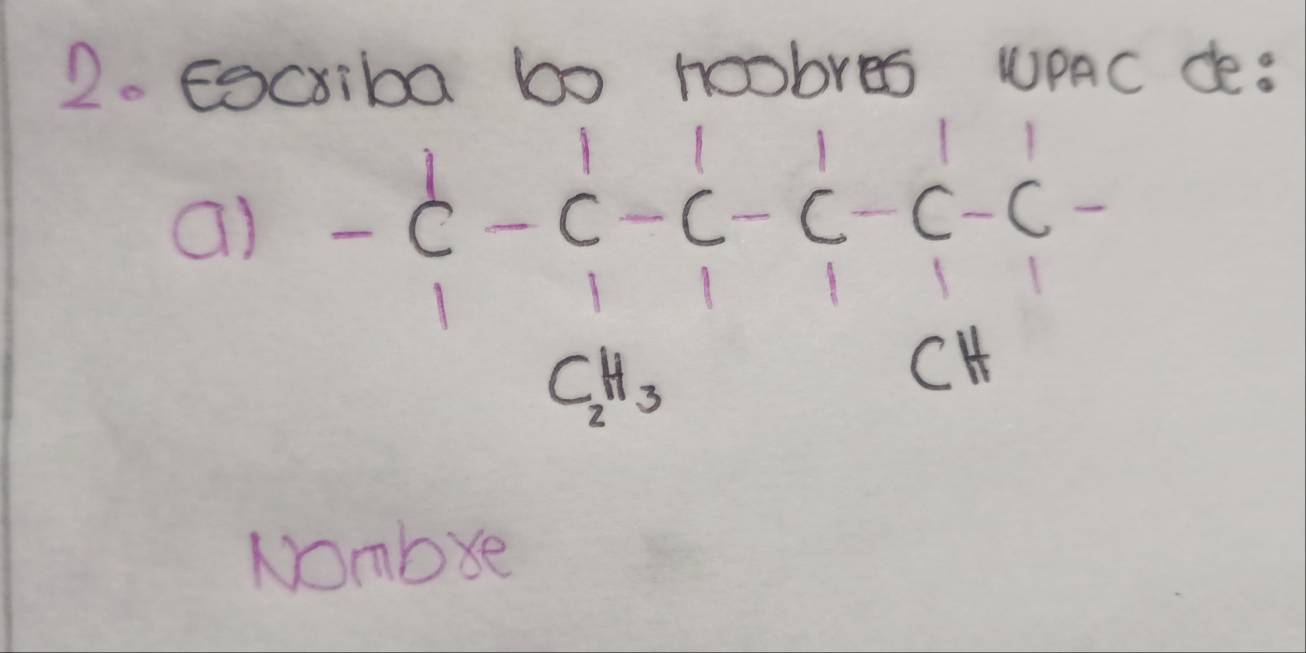 2. Escriba los noobres IUPAC de:
| | | | | |
a) - C - C - C - C - C - C -
| | | | | |
C₂H₃ CH
Nombre